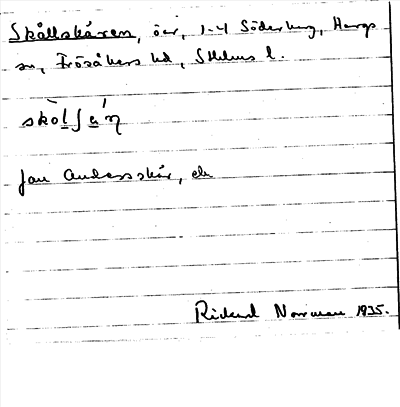 Skållskären, öar, 1-4 Söderby, Hargs
sn, Frösåkers hd, Sthlms l.
skòlʃɑ́η
Jan Anderssskär, ele
Rickard Norrman 1935.